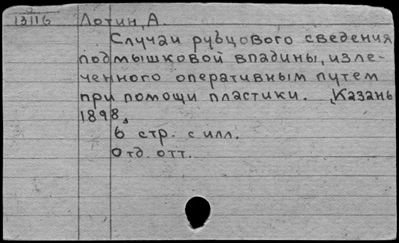 13116 Лотин, А.
Случаи рубцового сведения
подмышковой впадины, излe-
ченного оперативным путем
при помощи пластики. Казань
1898.
6 стр. с илл.
Отд. отт.